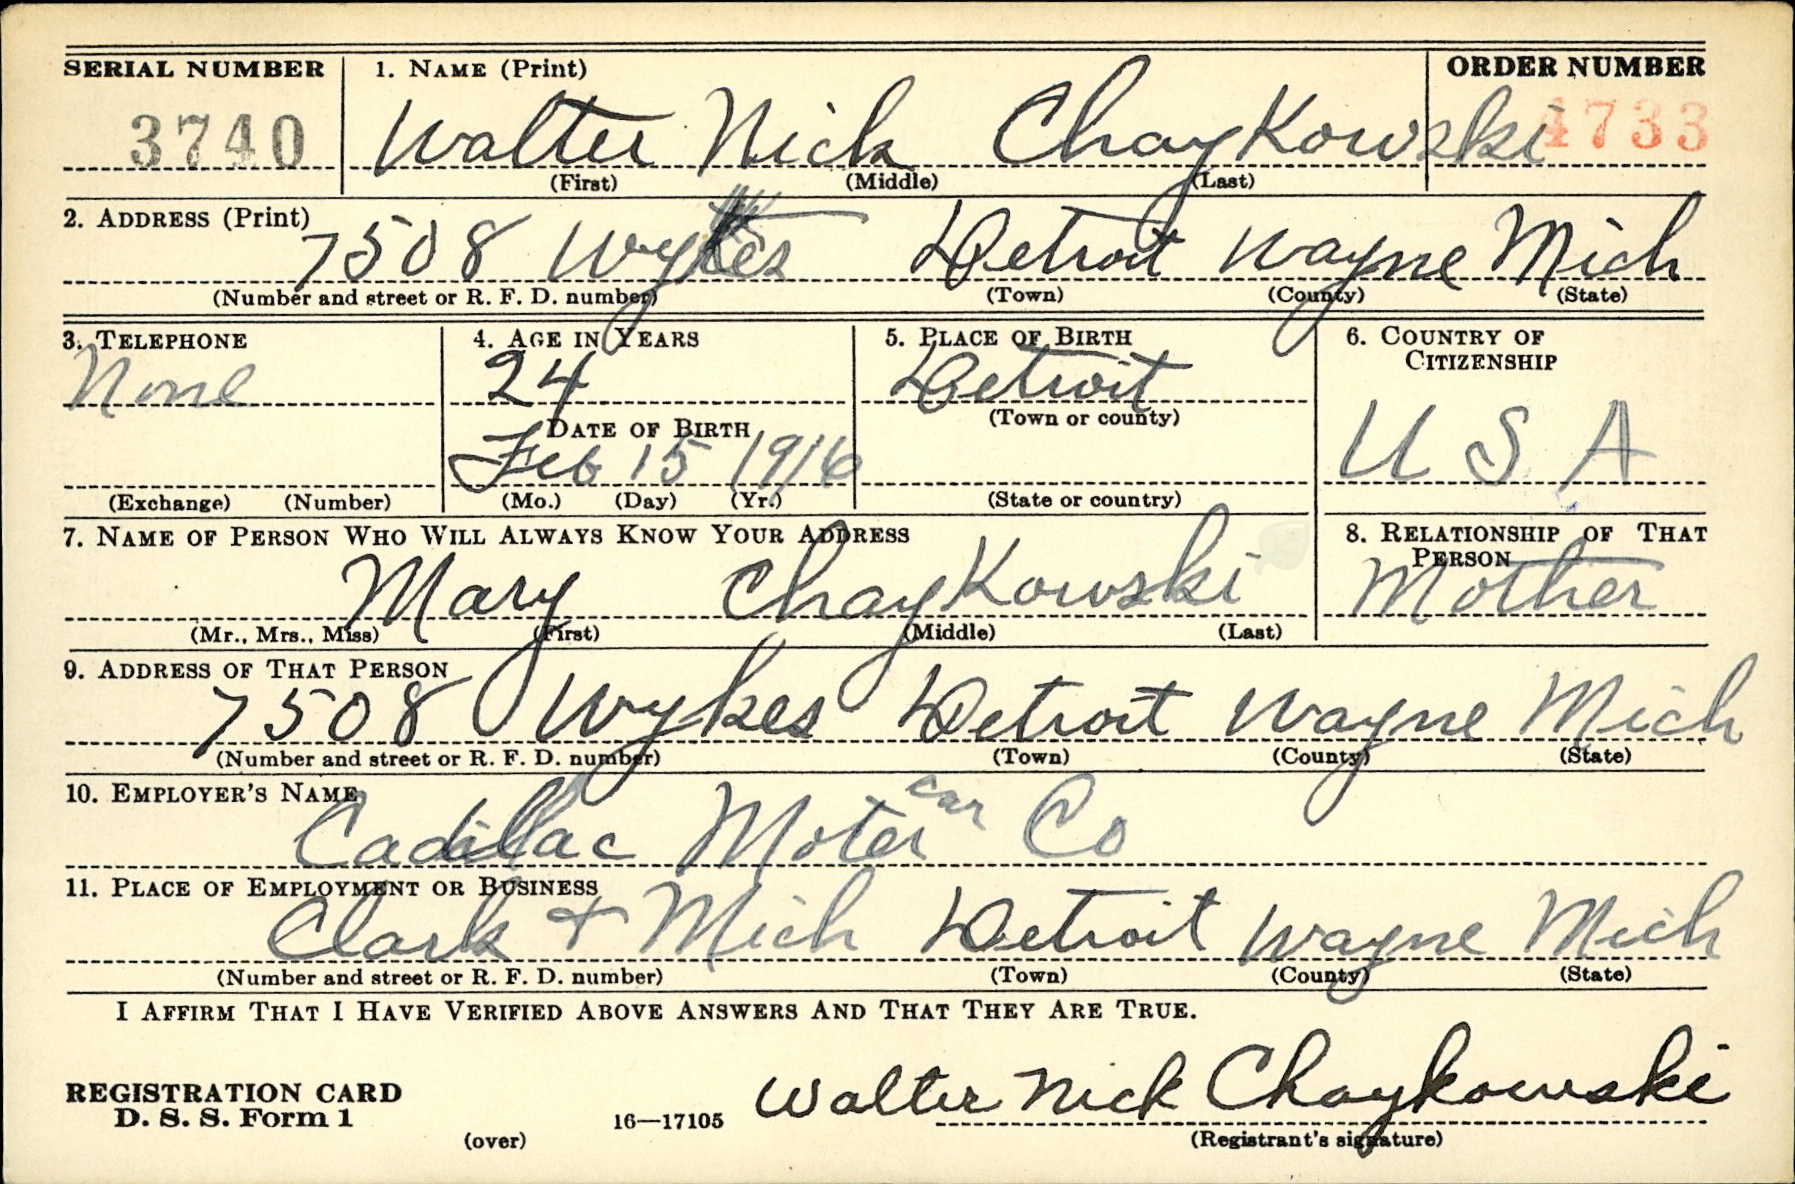 SERIAL NUMBER 1. NAME (Print) ORDER NUMBER
3740 Walter Nick Chaykowski 4733
(First) (Middle) (Last)
2. ADDRESS (Print)
7508 Wykes Detroit Wayne Mich
(Number and street or R. F. D. number) (Town) (County) (State)
3. TELEPHONE 4. AGE IN YEARS 5. PLACE OF BIRTH 6. COUNTRY OF
CITIZENSHIP
None 24 Detroit
DATE OF BIRTH (Town or county)
Feb 15 1916 U S A
(Exchange) (Number) (Mo.) (Day) (Yr.) (State or country)
7. NAME OF PERSON WHO WILL ALWAYS KNOW YOUR ADDRESS 8. RELATIONSHIP OF THAT
PERSON
Mary Chaykowski Mother
(Mr., Mrs., Miss) (First) (Middle) (Last)
9. ADDRESS OF THAT PERSON
7508 Wykes Detroit Wayne Mich
(Number and street or R. F. D. number) (Town) (County) (State)
10. EMPLOYER'S NAME
Cadillac Moter car Co
11. PLACE OF EMPLOYMENT OR BUSINESS
Clark + Mich Detroit Wayne Mich
(Number and street or R. F. D. number) (Town) (County) (State)
I AFFIRM THAT I HAVE VERIFIED ABOVE ANSWERS AND THAT THEY ARE TRUE.
REGISTRATION CARD Walter Nick Chaykowski
D. S. S. Form 1 16—17105
(over) (Registrant's signature)